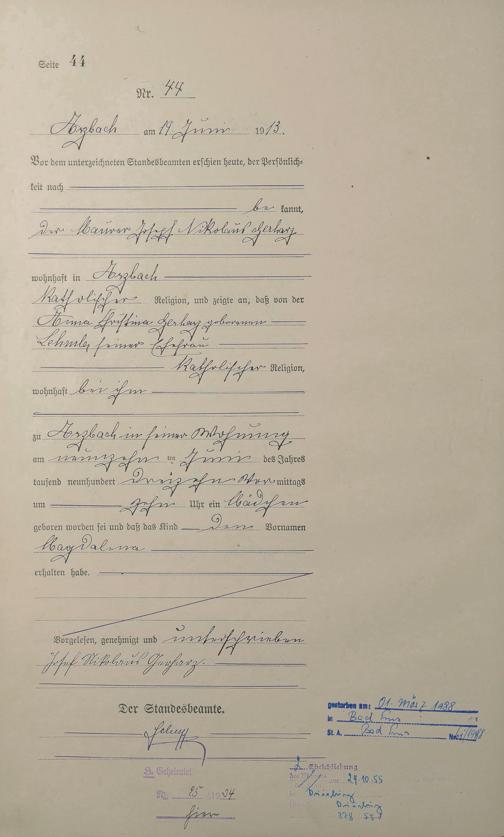 Seite 44
Nr. 44
Arzbach am 19 Juni 1913.
Vor dem unterzeichneten Standesbeamten erschien heute, der Persönlich-
keit nach
be kannt,
der Maurer Joseph Nikolaus Gerharz
wohnhaft in Arzbach
katholischer Religion, und zeigte an, daß von der
Anna Christina Gerharz geborenen
seiner Ehefrau
katholischer Religion,
wohnhaft bei ihm
zu Arzbach in seiner Wohnung
am neunzehn ten Juni des Jahres
tausend neunhundert dreizehn Vor mittags
um zehn Uhr ein Mädchen
geboren worden sei und daß das Kind den Vornamen
Magdalena
erhalten habe.
Vorgelesen, genehmigt und unterschrieben
Josef Nikolaus Gerharz.
Der Standesbeamte.
H. Geheiratet
Nr. 25/1934
hier
gestorben am: 01. März 1988
in Bad Ems
St. A. Bad Ems
2. Eheschließung
24.10.55
Duisburg
Duisburg